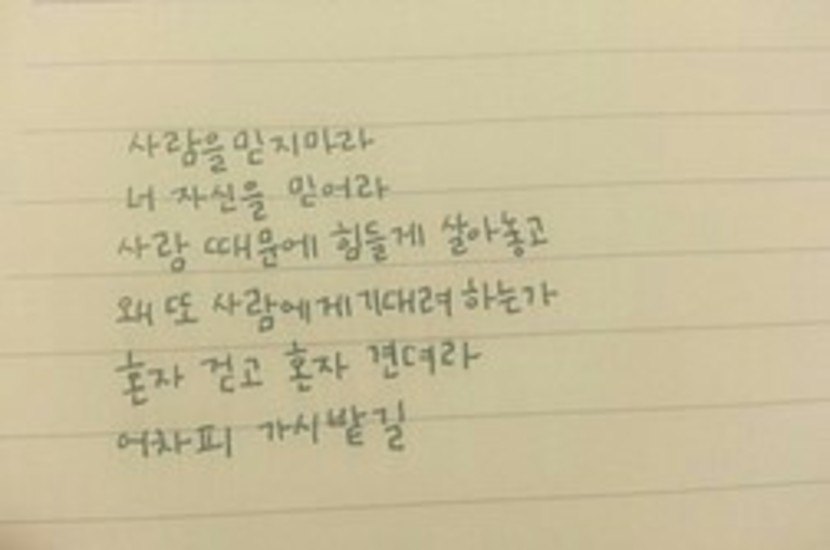 사람을 믿지마라
너 자신을 믿어라
사랑 때문에 힘들게 살아놓고
왜 또 사람에게 기대려 하는가
혼자 걷고 혼자 견뎌라
어차피 가시밭길